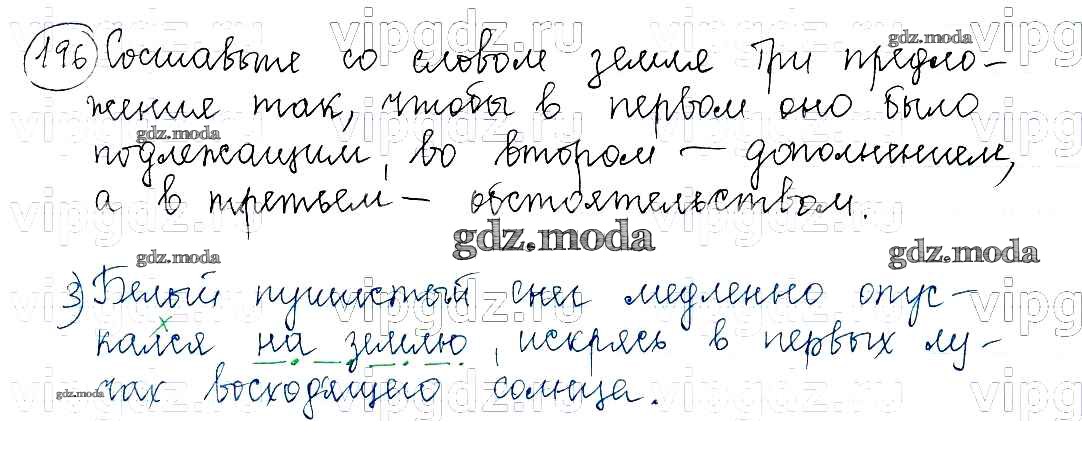 196 Составьте со словом земля три предло-
жения так, чтобы в первом оно было
подлежащим, во втором — дополнением,
а в третьем — обстоятельством.
3) Белый пушистый снег медленно опус-
кался на землю, искрясь в первых лу-
чах восходящего солнца.
vipgdz.ru
gdz.moda